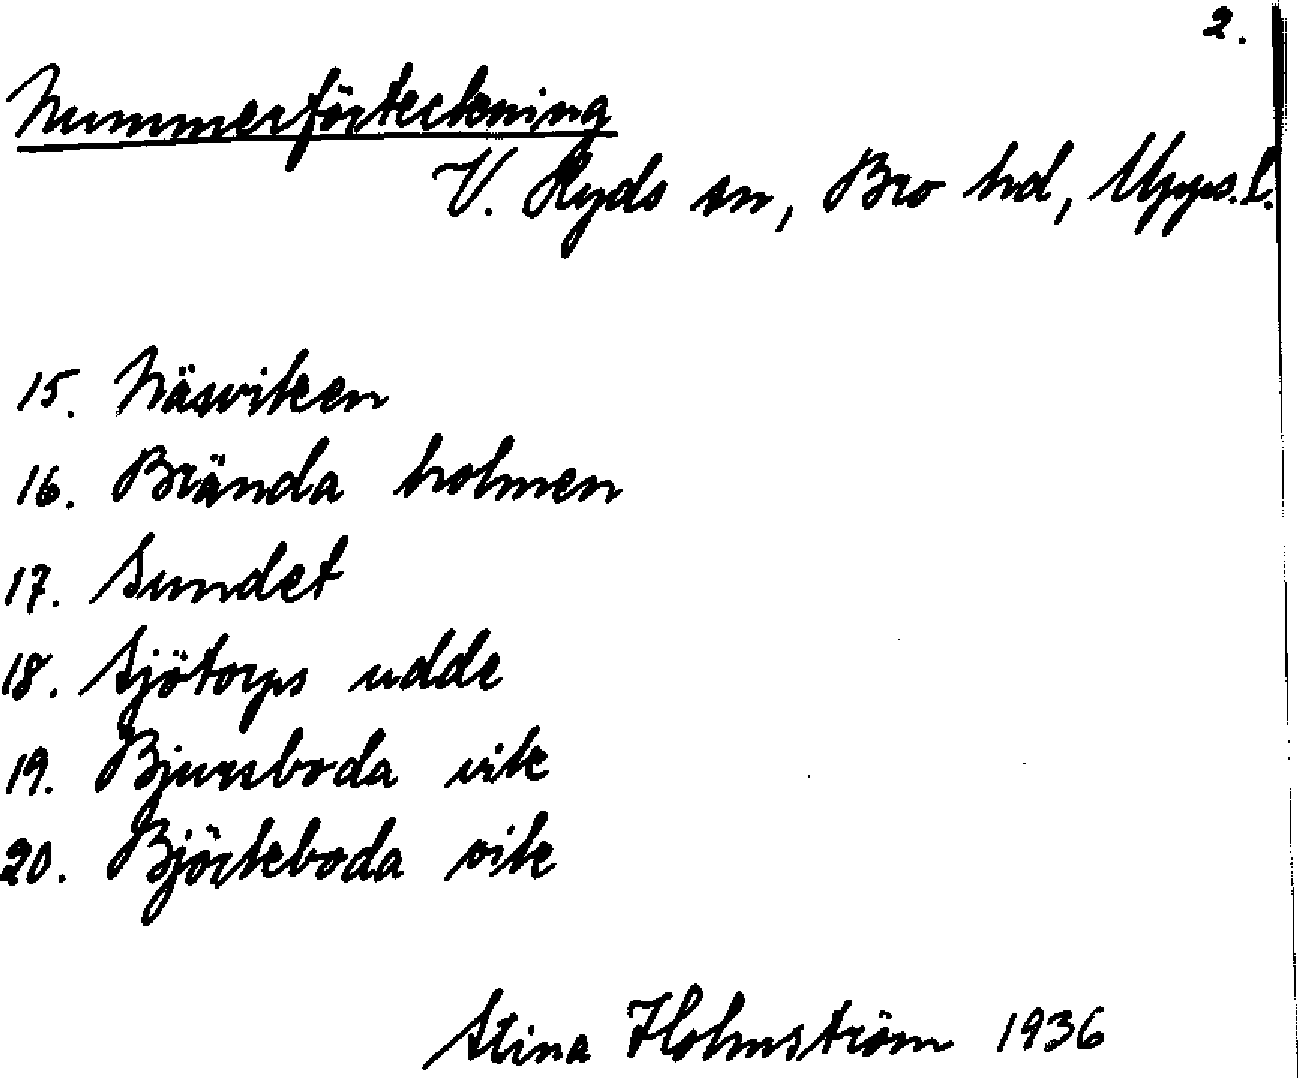 2.
Nummerförteckning
V. Ryds sn, Bro hd, Upps.l.
15. Näsviken
16. Brända holmen
17. Sundet
18. Sjötorps udde
19. Bjursboda vik
20. Björkeboda vik
Stina Holmström 1936